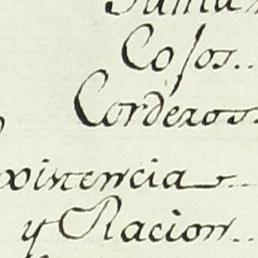 Cojos..
Corderos..
existencia...
y Racion..